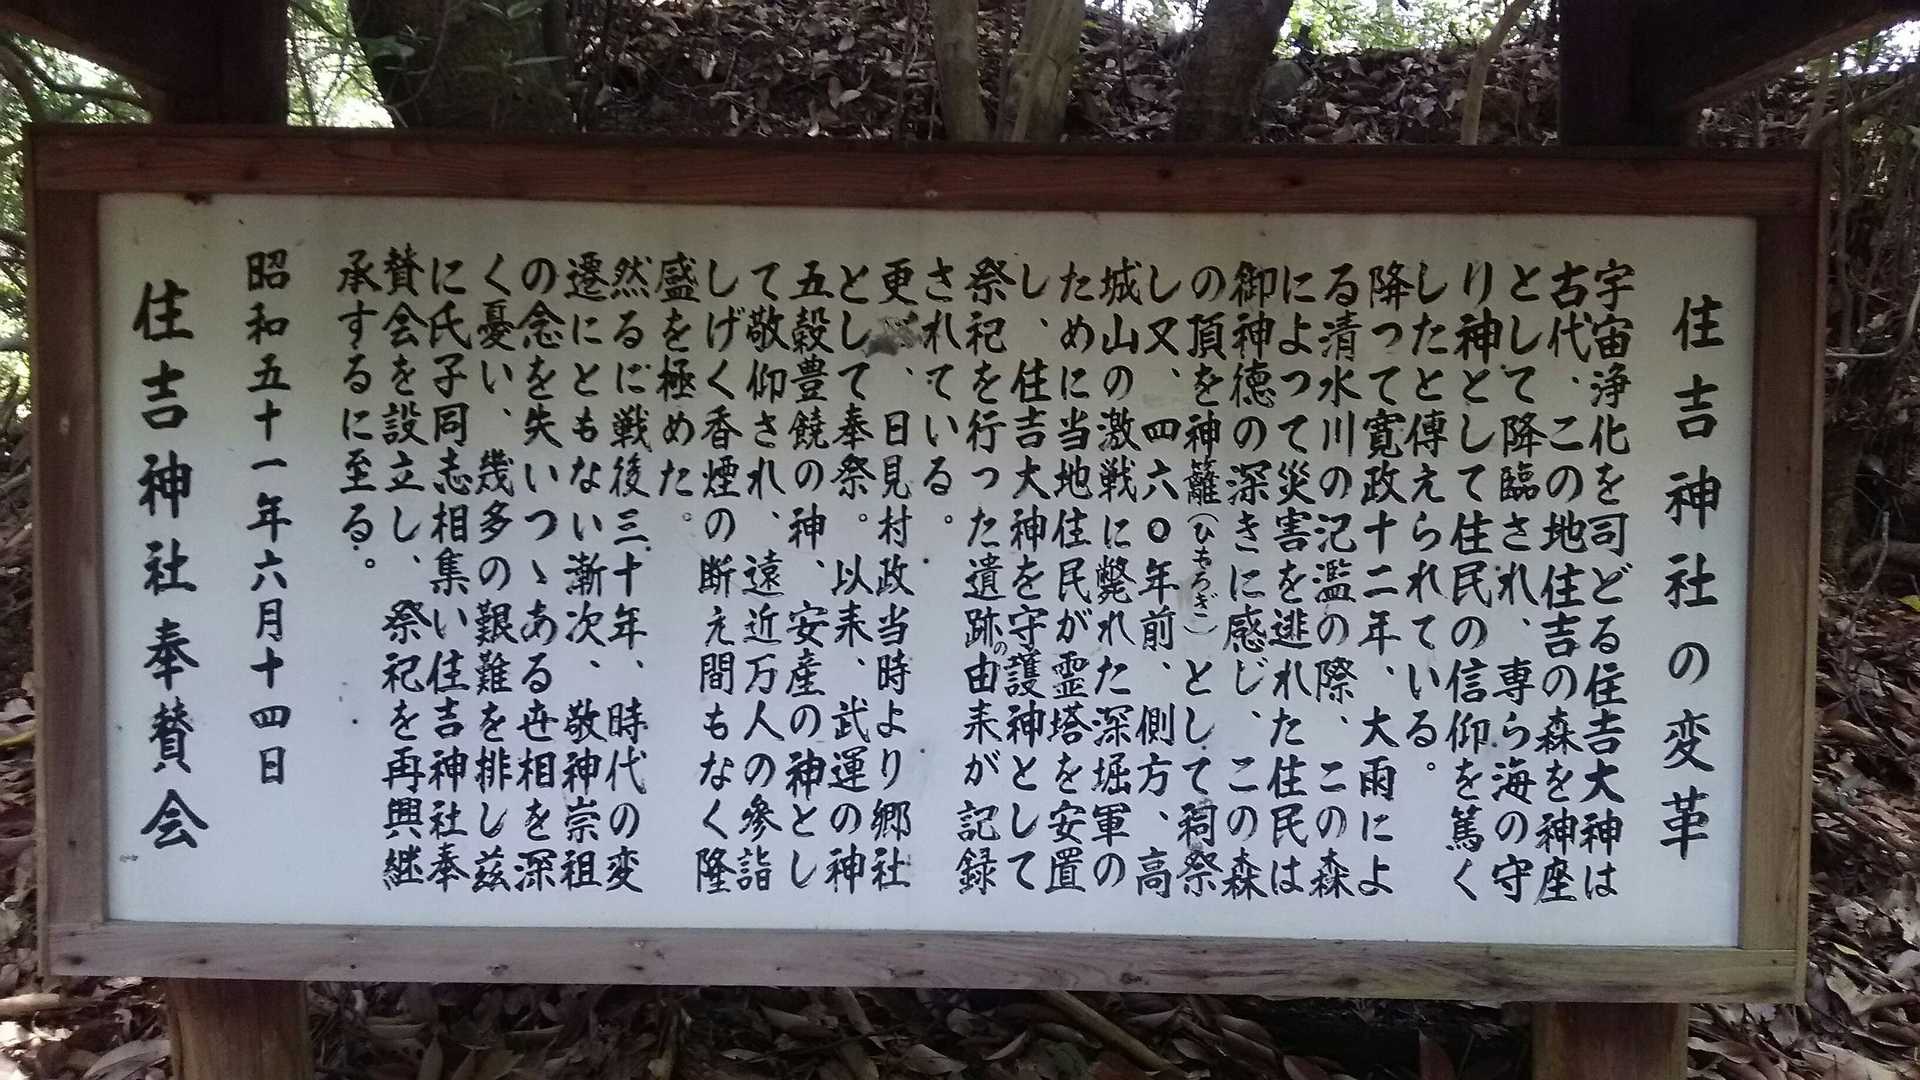 住吉神社の変革
宇宙浄化を司どる住吉大神は
古代、この地住吉の森を神座
として降臨され、専ら海の守
り神として住民の信仰を篤く
したと傳えられている。
降って寛政十二年、大雨によ
る清水川の氾濫の際、この森
によって災害を逃れた住民は
御神徳の深きに感じ、この森
の頂を神籬(ひもろぎ)として祠祭
し又、四六〇年前、側方、高
城山の激戦に斃れた深堀軍の
ために当地住民が霊塔を安置
し、住吉大神を守護神として
祭祀を行った遺跡の由来が記録
されている。
更に、日見村政当時より郷社
として奉祭。以来、武運の神
五穀豊饒の神、安産の神とし
て敬仰され、遠近万人の參詣
しげく香煙の断え間もなく隆
盛を極めた。
然るに戦後三十年、時代の変
遷にともない漸次、敬神崇祖
の念を失いつゝある世相を深
く憂い、幾多の艱難を排し茲
に氏子同志相集い住吉神社奉
賛会を設立し、祭祀を再興継
承するに至る。
昭和五十一年六月十四日
住吉神社奉賛会